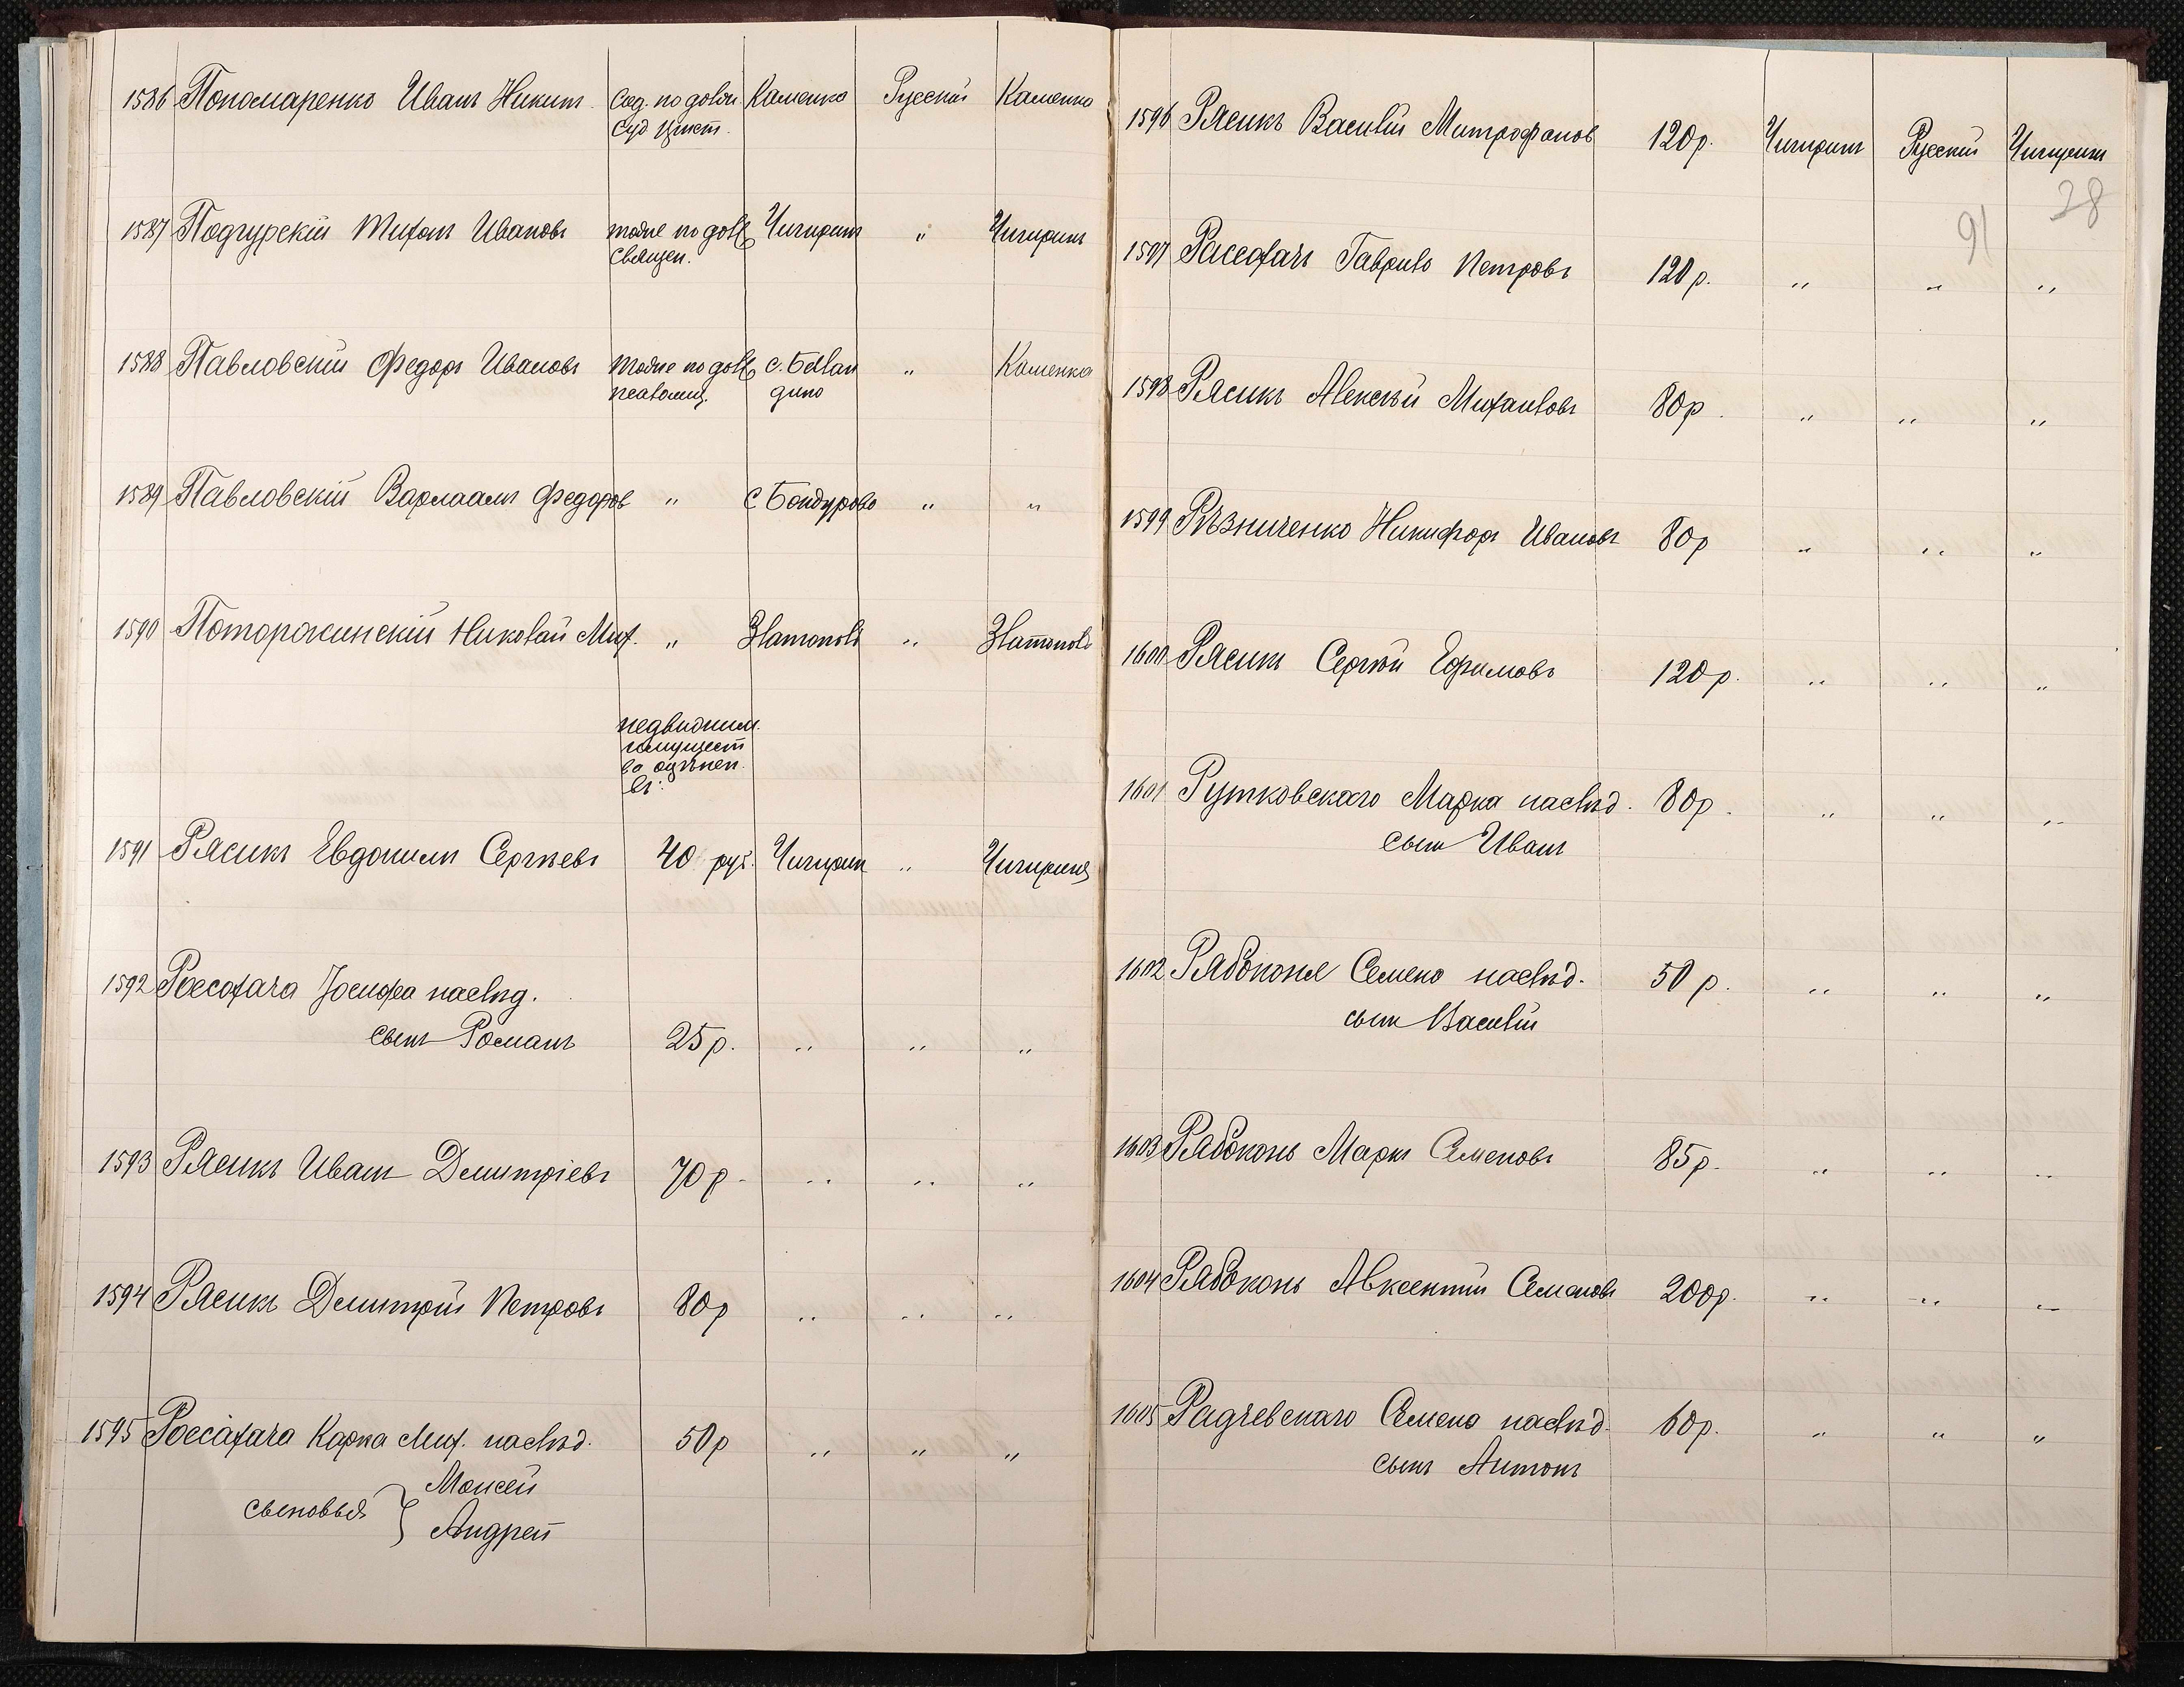 1586 Пономаренко Иванъ Никит. Каменка Русскій Каменка
Суд
1587 Подгурскій Иванов Чигиринъ " Чигиринъ
Священ.
1588 Павловскій Федоръ Ивановъ тоже по с. Балан " Каменка
псаломщ. дино
1589 Павловскій Варлаамъ Федоров " с Бондурово " "
1590 Поторжинскій Николай Мих. " Златополь " Златополь
недвижим.
имущест
во оцѣнен.
въ:
1591 Рясикъ Евдокимъ Сергѣевъ 40 руб. Чигирин " Чигиринъ
1592 Россохача Іосифа наслѣд.
сынъ Романъ 25 р. " " "
1593 Рясикъ Иванъ Дмитріевъ 70 р. " " "
1594 Рясикъ Дмитрій Петровъ 80 р " " "
1595 Россохача Карпа Мих. наслѣд. 50 р " " "
сыновья } Моисей
Андрей
1596 Рясикъ Василій Митрофанов 120 р. Чигиринъ Русскій Чигиринъ
91 38
1597 Россохачъ Гаврило Петровъ 120 р. " " "
1598 Рясикъ Алексѣй Михайловъ 80 р. " " "
1599 Рѣзниченко Никифоръ Ивановъ 80 р " " "
1600 Рясикъ Сергѣй Ефимовъ 120 р. " " "
1601 Рутковскаго Марка наслѣд. 80 р. " " "
сынъ Иванъ
1602 Рябоконя Семена наслѣд. 50 р. " " "
сынъ Василій
1603 Рябоконь Маркъ Семеновъ 85 р. " " "
1604 Рябоконь Авксентій Семеновъ 200 р. " " "
1605 Радчевскаго Семена наслѣд. 60 р. " " "
сынъ Антонъ